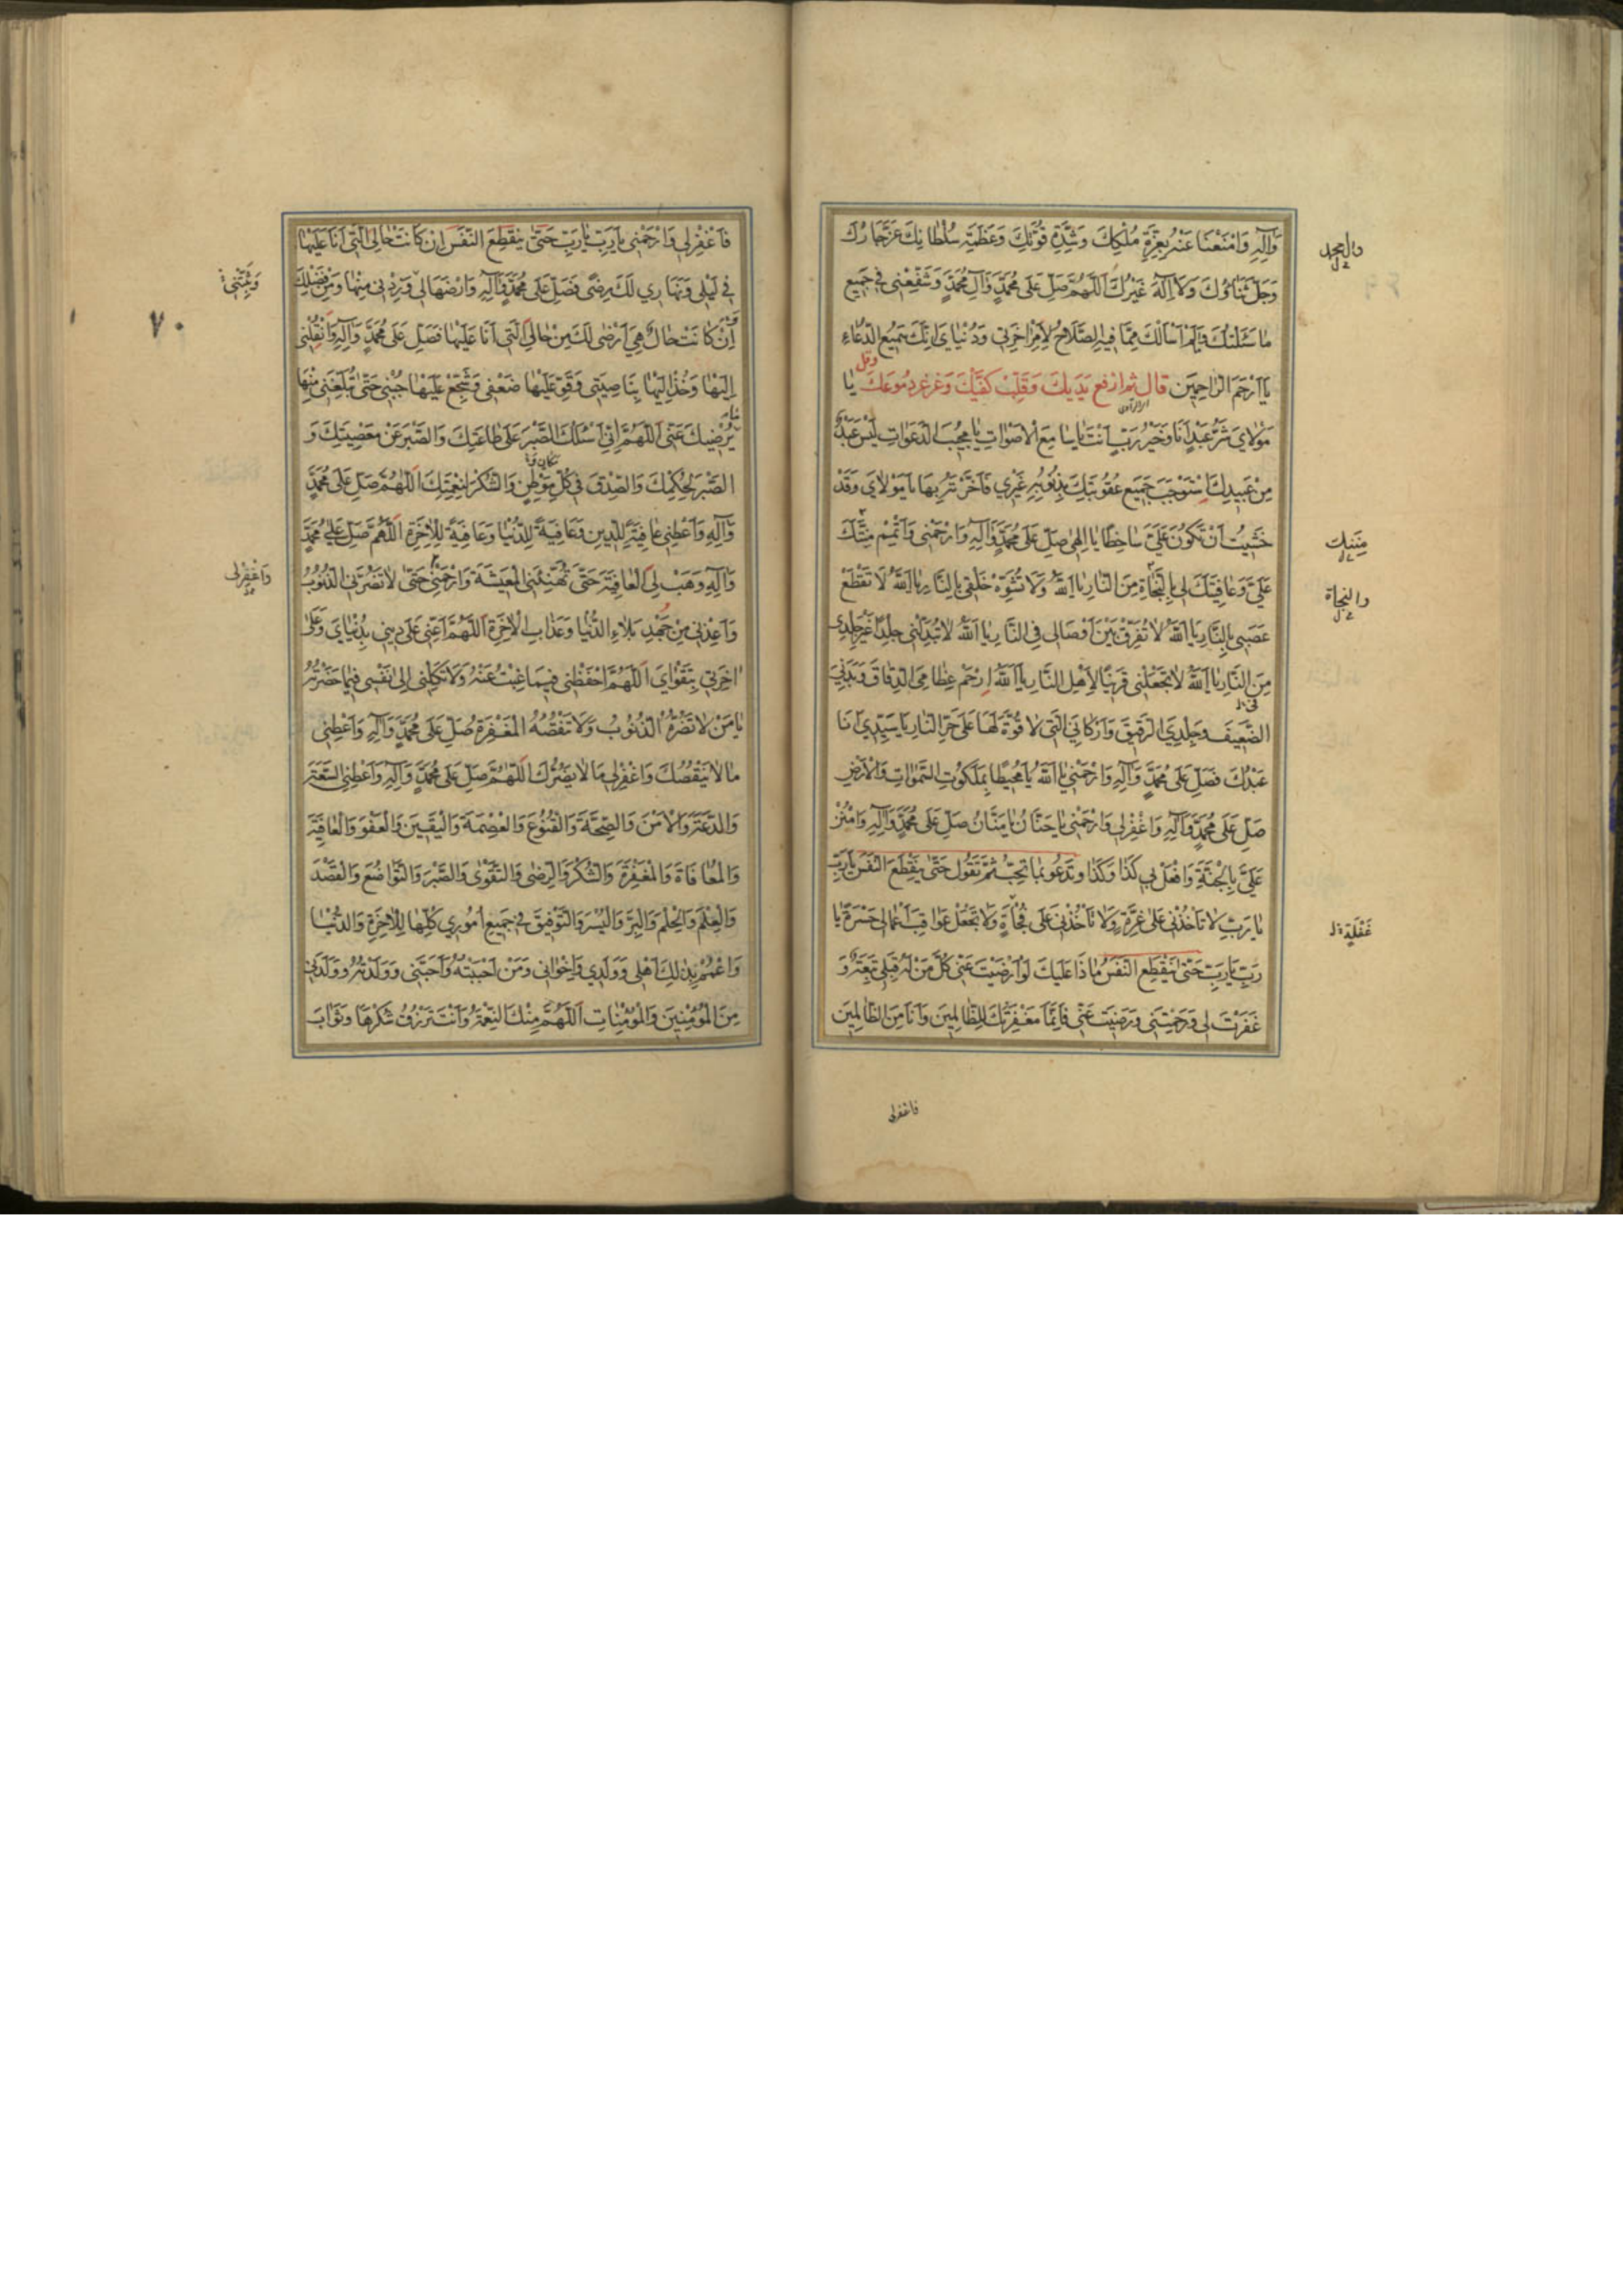 وَآلِهِ وَامْنَعْنَا عَنْهُ بِعِزَّةِ مُلْكِكَ وَشِدَّةِ قُوَّتِكَ وَعَظَمَةِ سُلْطَانِكَ عَزَّ جَارُكَ
وَجَلَّ ثَنَاؤُكَ وَلَا إِلَهَ غَيْرُكَ اَللّٰهُمَّ صَلِّ عَلَى مُحَمَّدٍ وَآلِ مُحَمَّدٍ وَشَفِّعْنِي فِي جَمِيعِ
مَا سَئَلْتُكَ وَلَمْ أَسْأَلْكَ مِمَّا فِيهِ الصَّلَاحُ لِأَمْرِ آخِرَتِي وَدُنْيَايَ إِنَّكَ سَمِيعُ الدُّعَاءِ
يَا أَرْحَمَ الرَّاحِمِينَ قال ثم ارفع يَدَيكَ وَقَلِّبْ كَفَّيْكَ وَغرغر دمُوعَكَ وقل يَا
مَوْلَايَ شَرُّ عَبْدٍ أَنَا وَخَيْرُ رَبٍّ أَنْتَ يَا سَامِعَ الْأَصْوَاتِ يَا مُجِيبَ الدَّعَوَاتِ لَيْسَ عَبْدٌ
مِنْ عَبِيدِكَ اِسْتَوْجَبَ جَمِيعَ عُقُوبَتِكَ بِذُنُوبِهِ غَيْرِي فَأَخَّرْتَهُ بِهَا يَا مَوْلَايَ وَقَدْ
خَشِيتُ أَنْ تَكُونَ عَلَيَّ سَاخِطًا يَا إِلٰهِي صَلِّ عَلَى مُحَمَّدٍ وَآلِهِ وَارْحَمْنِي وَأَتْمِمْ مَنَّكَ
عَلَيَّ وَعَافِيَتَكَ لِي بِالنَّجَاةِ مِنَ النَّارِ يَا اَللّٰهُ وَلَا تُشَوِّهْ خَلْقِي بِالنَّارِ يَا اَللّٰهُ لَا تَقْطَعْ
عَصَبِي بِالنَّارِ يَا اَللّٰهُ لَا تُفَرِّقْ بَيْنَ أَوْصَالِي فِي النَّارِ يَا اَللّٰهُ لَا تُبَدِّلْنِي جِلْدًا غَيْرَ جِلْدِي
مِنَ النَّارِ يَا اَللّٰهُ لَا تَجْعَلْنِي قَرِينًا لِأَهْلِ النَّارِ يَا اَللّٰهُ اِرْحَمْ عِظَامِيَ الدِّقَاقَ وَبَدَنِيَ
الضَّعِيفَ وَجِلْدِيَ الرَّقِيقَ وَأَرْكَانِيَ الَّتِي لَا قُوَّةَ لَهَا عَلَى حَرِّ النَّارِ يَا سَيِّدِي أَنَا
عَبْدُكَ فَصَلِّ عَلَى مُحَمَّدٍ وَآلِهِ وَارْحَمْنِي يَا اَللّٰهُ يَا مُحِيطًا بِمَلَكُوتِ السَّمٰوَاتِ وَالْأَرْضِ
صَلِّ عَلَى مُحَمَّدٍ وَآلِهِ وَاغْفِرْ لِي وَارْحَمْنِي يَا حَنَّانُ يَا مَنَّانُ صَلِّ عَلَى مُحَمَّدٍ وَآلِهِ وَامْنُنْ
عَلَيَّ بِالْجَنَّةِ وَافْعَلْ بِي كَذَا وَكَذَا وتَدعُو بما تحِبّ ثمّ تقُول حَتّى ينقَطِعَ النّفَس يَا رَبِّ
يَا رَبِّ لَا تَأْخُذْنِي عَلَى غِرَّةٍ وَلَا تَأْخُذْنِي عَلَى فُجْأَةٍ وَلَا تَجْعَلْ عَوَاقِبَ أَعْمَالِي حَسْرَةً يَا
رَبِّ يَا رَبِّ حَتّى ينْقَطِعَ النّفَسُ مَاذَا عَلَيْكَ لَوْ أَرْضَيْتَ عَنِّي كُلَّ مَنْ لَهُ قِبَلِي تَبِعَةٌ وَ
غَفَرْتَ لِي وَرَحِمْتَنِي وَرَضِيتَ عَنِّي فَإِنَّمَا مَغْفِرَتُكَ لِلظَّالِمِينَ وَأَنَا مِنَ الظَّالِمِينَ
مِنَنِكَ
والنجاة
غَفْلَةٍ
فاغفرلى
فَاغْفِرْ لِي وَارْحَمْنِي يَا رَبِّ يَا رَبِّ حَتّى ينْقَطِعَ النَّفَسَ إِنْ كَانَتْ حَالِيَ الَّتِي أَنَا عَلَيْهَا
فِي لَيْلِي وَنَهَارِي لَكَ رِضًى فَصَلِّ عَلَى مُحَمَّدٍ وَآلِهِ وَارْضَهَا لِي وَزِدْنِي مِنْهَا وَمِنْ فَضْلِكَ
وَإِنْ كَانَتْ حَالٌ هِيَ أَرْضَى لَكَ مِنْ حَالِيَ الَّتِي أَنَا عَلَيْهَا فَصَلِّ عَلَى مُحَمَّدٍ وَآلِهِ وَانْقُلْنِي
إِلَيْهَا وَخُذْ إِلَيْهَا بِنَاصِيَتِي وَقَوِّ عَلَيْهَا ضَعْفِي وَشَجِّعْ عَلَيْهَا جُبْنِي حَتّى تُبَلِّغَنِي مِنْهَا
يُرْضِيكَ عَنِّي اَللّٰهُمَّ إِنِّي أَسْئَلُكَ الصَّبْرَ عَلَى طَاعَتِكَ وَالصَّبْرَ عَنْ مَعْصِيَتِكَ وَ
الصَّبْرَ لِحُكْمِكَ وَالصِّدْقَ فِي كُلِّ مَوْطِنٍ وَالشُّكْرَ لِنِعْمَتِكَ اَللّٰهُمَّ صَلِّ عَلَى مُحَمَّدٍ
وَآلِهِ وَأَعْطِنِي عَافِيَةً لِلدِّينِ وَعَافِيَةً لِلدُّنْيَا وَعَافِيَةً لِلْآخِرَةِ اَللّٰهُمَّ صَلِّ عَلَى مُحَمَّدٍ
وَآلِهِ وَهَبْ لِيَ الْعَافِيَةَ حَتّى تُهَنِّئَنِي الْمَعِيشَةَ وَارْحَمْنِي حَتّى لَا تَضُرَّنِي الذُّنُوبُ
وَأَعِذْنِي مِنْ جَهْدِ بَلَاءِ الدُّنْيَا وَعَذَابِ الْآخِرَةِ اَللّٰهُمَّ أَعِنِّي عَلَى دِينِي بِدُنْيَايَ وَعَلَى
آخِرَتِي بِتَقْوَايَ اَللّٰهُمَّ احْفَظْنِي فِيمَا غِبْتُ عَنْهُ وَلَا تَكِلْنِي إِلَى نَفْسِي فِيمَا حَضَرْتُهُ
يَا مَنْ لَا تَضُرُّهُ الذُّنُوبُ وَلَا تَنْقُصُهُ الْمَغْفِرَةُ صَلِّ عَلَى مُحَمَّدٍ وَآلِهِ وَأَعْطِنِي
مَا لَا يَنْقُصُكَ وَاغْفِرْ لِي مَا لَا يَضُرُّكَ اَللّٰهُمَّ صَلِّ عَلَى مُحَمَّدٍ وَآلِهِ وَأَعْطِنِي السَّعَةَ
وَالدَّعَةَ وَالْأَمْنَ وَالصِّحَّةَ وَالْقُنُوعَ وَالْعِصْمَةَ وَالْيَقِينَ وَالْعَفْوَ وَالْعَافِيَةَ
وَالْمُعَافَاةَ وَالْمَغْفِرَةَ وَالشُّكْرَ وَالرِّضٰى وَالتَّقْوٰى وَالصَّبْرَ وَالتَّوَاضُعَ وَالْقَصْدَ
وَالْعِلْمَ وَالْحِلْمَ وَالْبِرَّ وَالْيُسْرَ وَالتَّوْفِيقَ فِي جَمِيعِ أُمُورِي كُلِّهَا لِلْآخِرَةِ وَالدُّنْيَا
وَاعْمُمْ بِذٰلِكَ أَهْلِي وَوَلَدِي وَإِخْوَانِي وَمَنْ أَحْبَبْتُهُ وَأَحَبَّنِي وَوَلَدْتُهُ وَوَلَدَنِي
مِنَ الْمُؤْمِنِينَ وَالْمُؤْمِنَاتِ اَللّٰهُمَّ مِنْكَ النِّعْمَةُ وَأَنْتَ تَرْزُقُ شُكْرَهَا وَثَوَابَ
وَاغْفِرْلى
٧٠